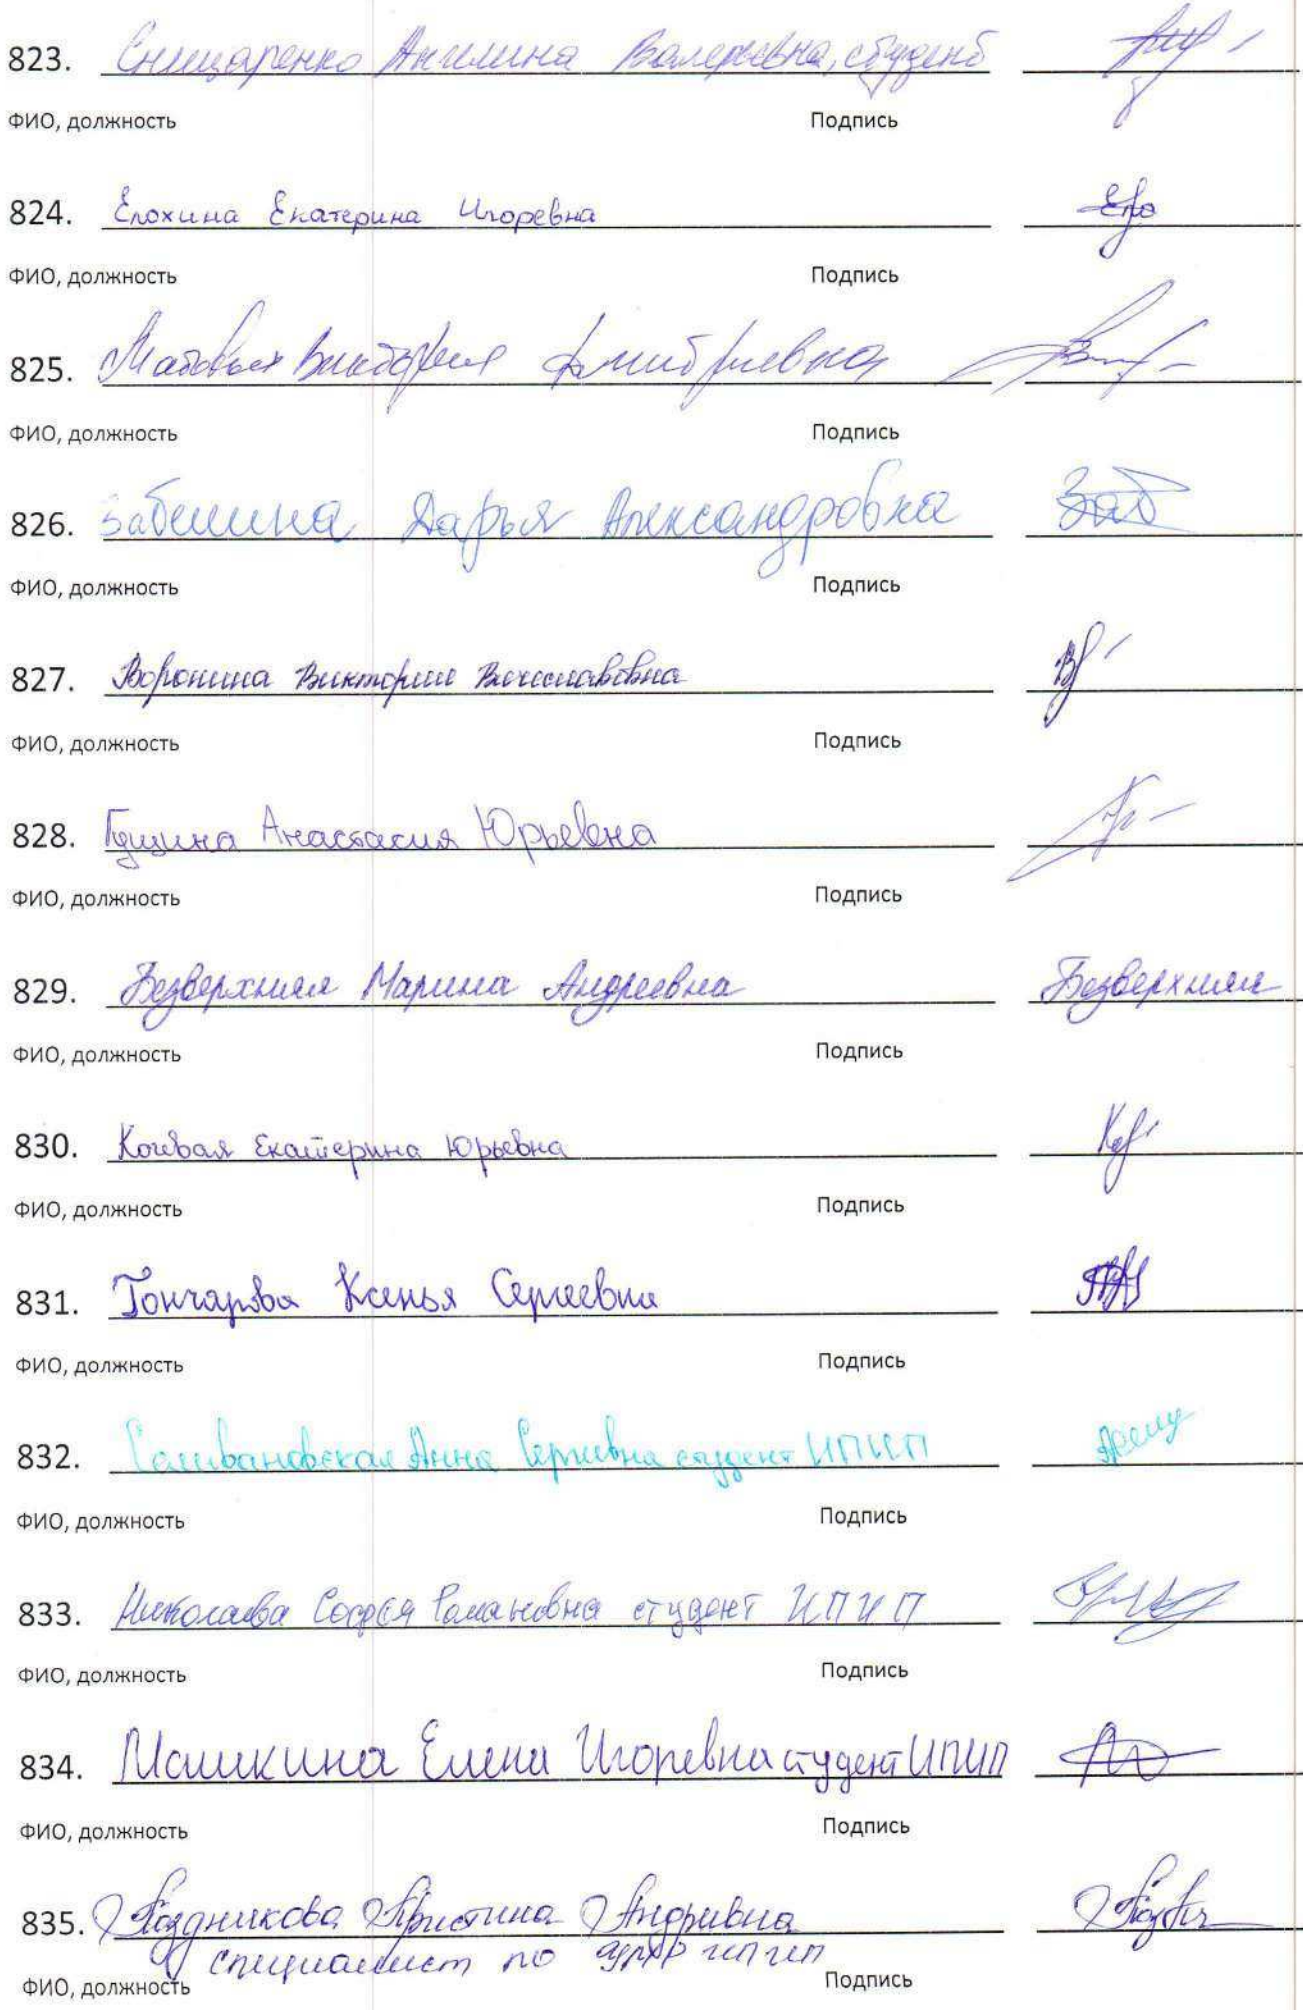 823. Снищаренко Ангелина Валерьевна, студент
ФИО, должность Подпись
824. Елохина Екатерина Игоревна
ФИО, должность Подпись
825. Виктория Дмитриевна
ФИО, должность Подпись
826. Забелина Дарья Александровна Заб
ФИО, должность Подпись
827. Воронина Виктория Вячеславовна
ФИО, должность Подпись
828. Гущина Анастасия Юрьевна
ФИО, должность Подпись
829. Безверхняя Марина Андреевна Безверхняя
ФИО, должность Подпись
830. Кочевая Екатерина Юрьевна
ФИО, должность Подпись
831. Гончарова Ксенья Сергеевна
ФИО, должность Подпись
832. Селивановская Анна Сергеевна студент ИПИП
ФИО, должность Подпись
833. Николаева Софья Романовна студент ИПИП
ФИО, должность Подпись
834. Машкина Елена Игоревна студент ИПИП
ФИО, должность Подпись
835. Поздникова Кристина Андреевна
специалист по ИПИП
ФИО, должность Подпись